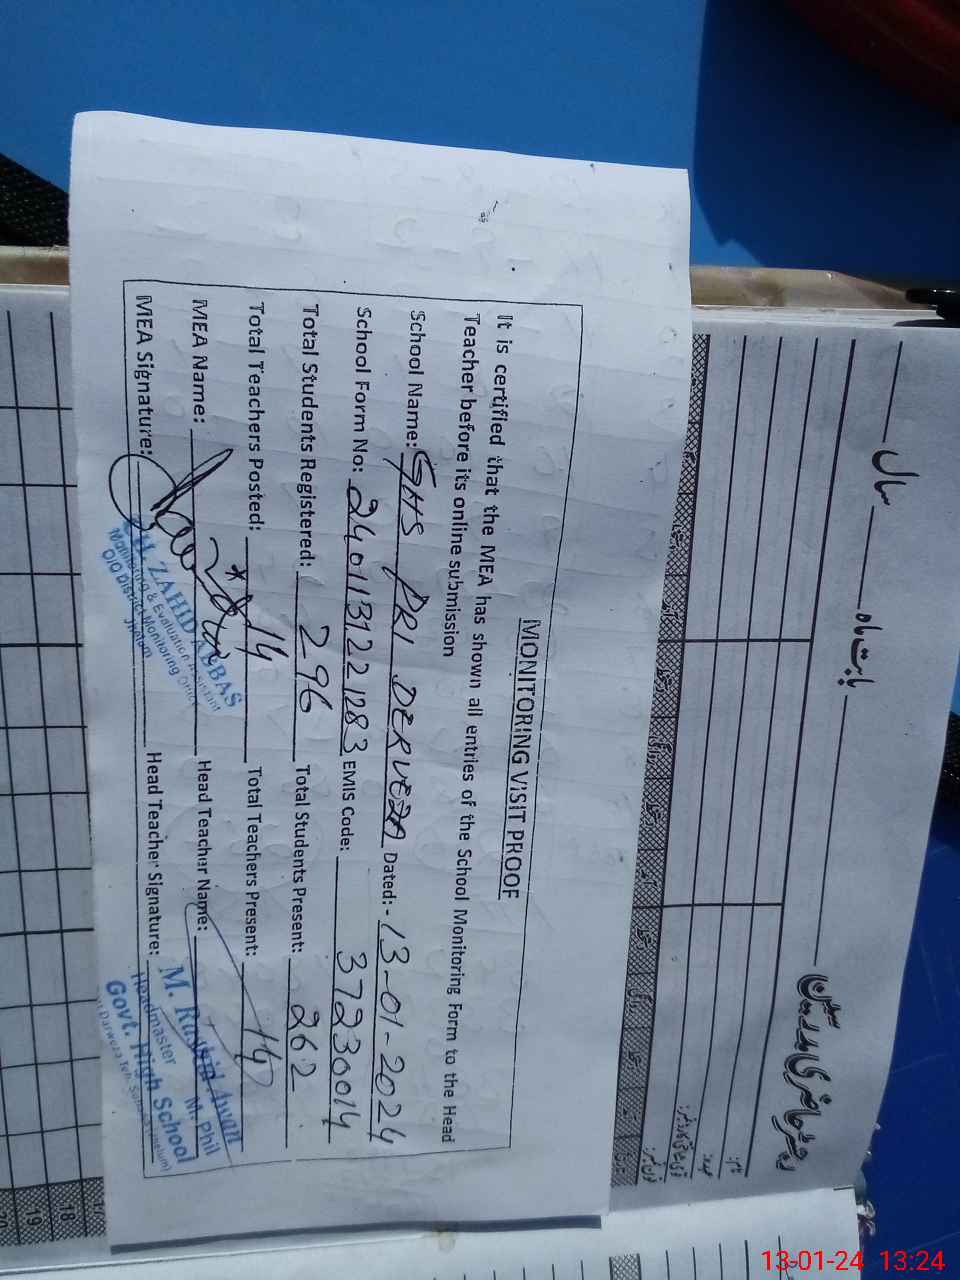 MONITORING VISIT PROOF
It is certified that the MEA has shown all entries of the School Monitoring Form to the Head
Teacher before its online submission
School Name: GHS PRI DERVEZA Dated:- 13-01-2024
School Form No: 2401131221283 EMIS Code: 37230014
Total Students Registered: 296 Total Students Present: 262
Total Teachers Posted: 14 Total Teachers Present: 14
MEA Name: Head Teacher Name:
MEA Signature: Head Teacher Signature:
ZAHID ABBAS
Monitoring & Evaluation Assistant
O/O District Monitoring Officer
Jhelum
M. Rashid Awan
Headmaster M. Phil
Govt. High School
Darweza Teh. Sohawa (Jhelum)
رجسٹر حاضری مدرسین بابت ماہ سال
نام:
عہدہ:
شناختی کارڈ نمبر:
فون نمبر:
18
19
20
13-01-24 13:24